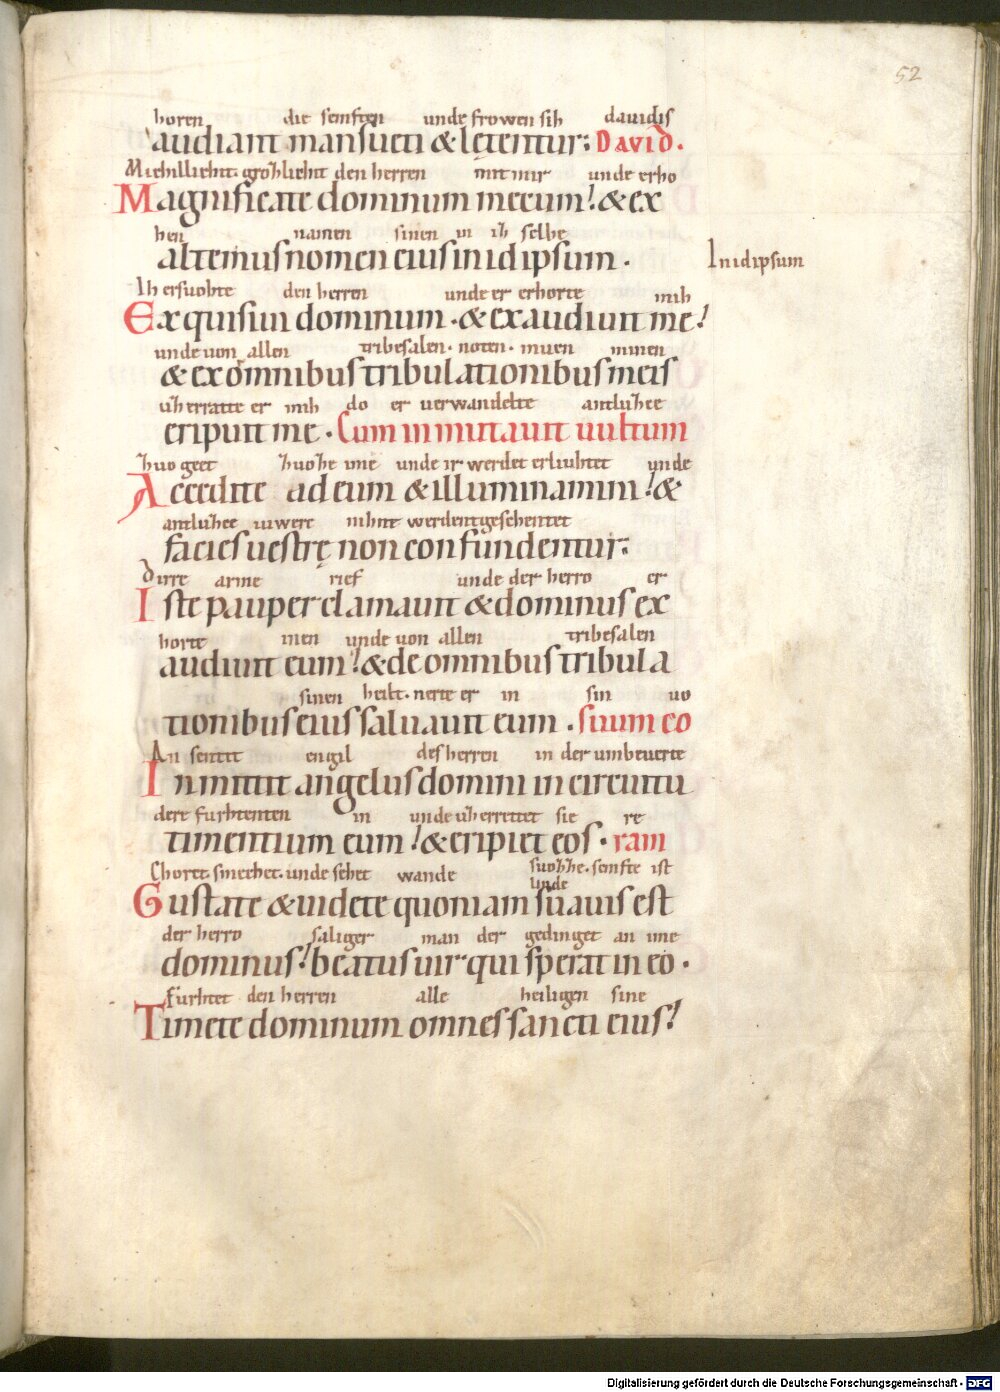 52
horen die semften unde frowen sih dauidis
audiant mansueti & lętentur: DAVID.
Michillicht. grozlicht den herren mit mir unde erho
Magnificate dominum mecum! & ex
hen namen sinen in ih selbe
altemus nomen eius in idipsum.
In idipsum
Ih ersuohte den herren unde er erhorte mih
Exquisiui dominum. & exaudiuit me!
unde uon allen tribesalen. noten. minen
& ex omnibus tribulationibus meis
uzherratte er mih do er uerwandelte antluzee
eripuit me. Cum inmutauit uultum
zuo geet zuo ime unde ir werdet erliuhtet unde
Accedite ad eum & illuminamini! &
antluzee iuwere nihnt werdent geschentet
facies uestrę non confundentur:
Dirre arme rief unde der herro er
Iste pauper clamauit & dominus ex
horte inen unde uon allen tribesalen
audiuit eum! & de omnibus tribula
sinen heilt. nerte er in sin uo
tionibus eius saluauit eum. suum co
An sentit engil des herren in der umbeuerte
Inmittit angelus domini in circuitu
dere furhtenten in unde uzherrettet sie re
timentium eum! & eripiet eos. ram
Choret. smechet. unde sehet wande suozhe. semfte ist
unde
Gustate & uidete quoniam suauis est
der herro saliger man der gedinget an ime
dominus! beatus uir qui sperat in eo.
Furhtet den herren alle heiligen sine
Timete dominum omnes sancti eius!
Digitalisierung gefördert durch die Deutsche Forschungsgemeinschaft - DFG